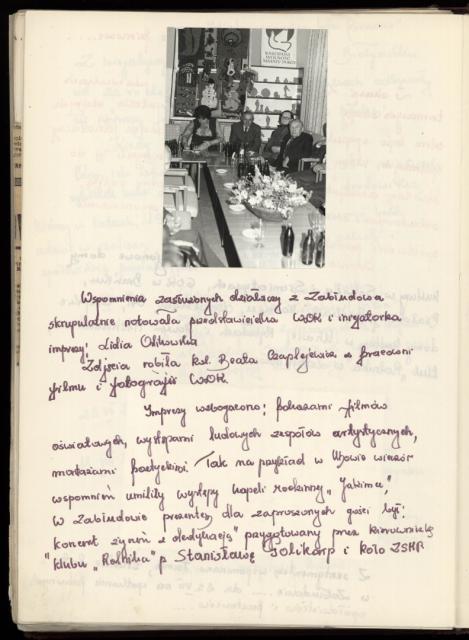 NARODOM
WOLNOŚĆ
ŚWIATU POKÓJ
Wspomnienia zasłużonych działaczy z Zabłudowa
skrupulatnie notowała przedstawicielka WDK i inicjatorka
imprezy! Lidia
Zdjęcia robiła kol. Beata Czaplejewicz z pracowni
filmu i fotografii WDK.
Imprezy wzbogacono: pokazami filmów
oświatowych, występami ludowych zespołów artystycznych,
montażami poetyckimi. Tak na przykład w wieczór
wspomnień umiliły występy kapeli rodzinnej "
w Zabłudowie prezentem dla zaproszonych gości był:
koncert życzeń z dedykacją" przygotowany przez kierowniczkę
"klubu "Rolnika" p Stanisławę Golikarp i koło ZSMP